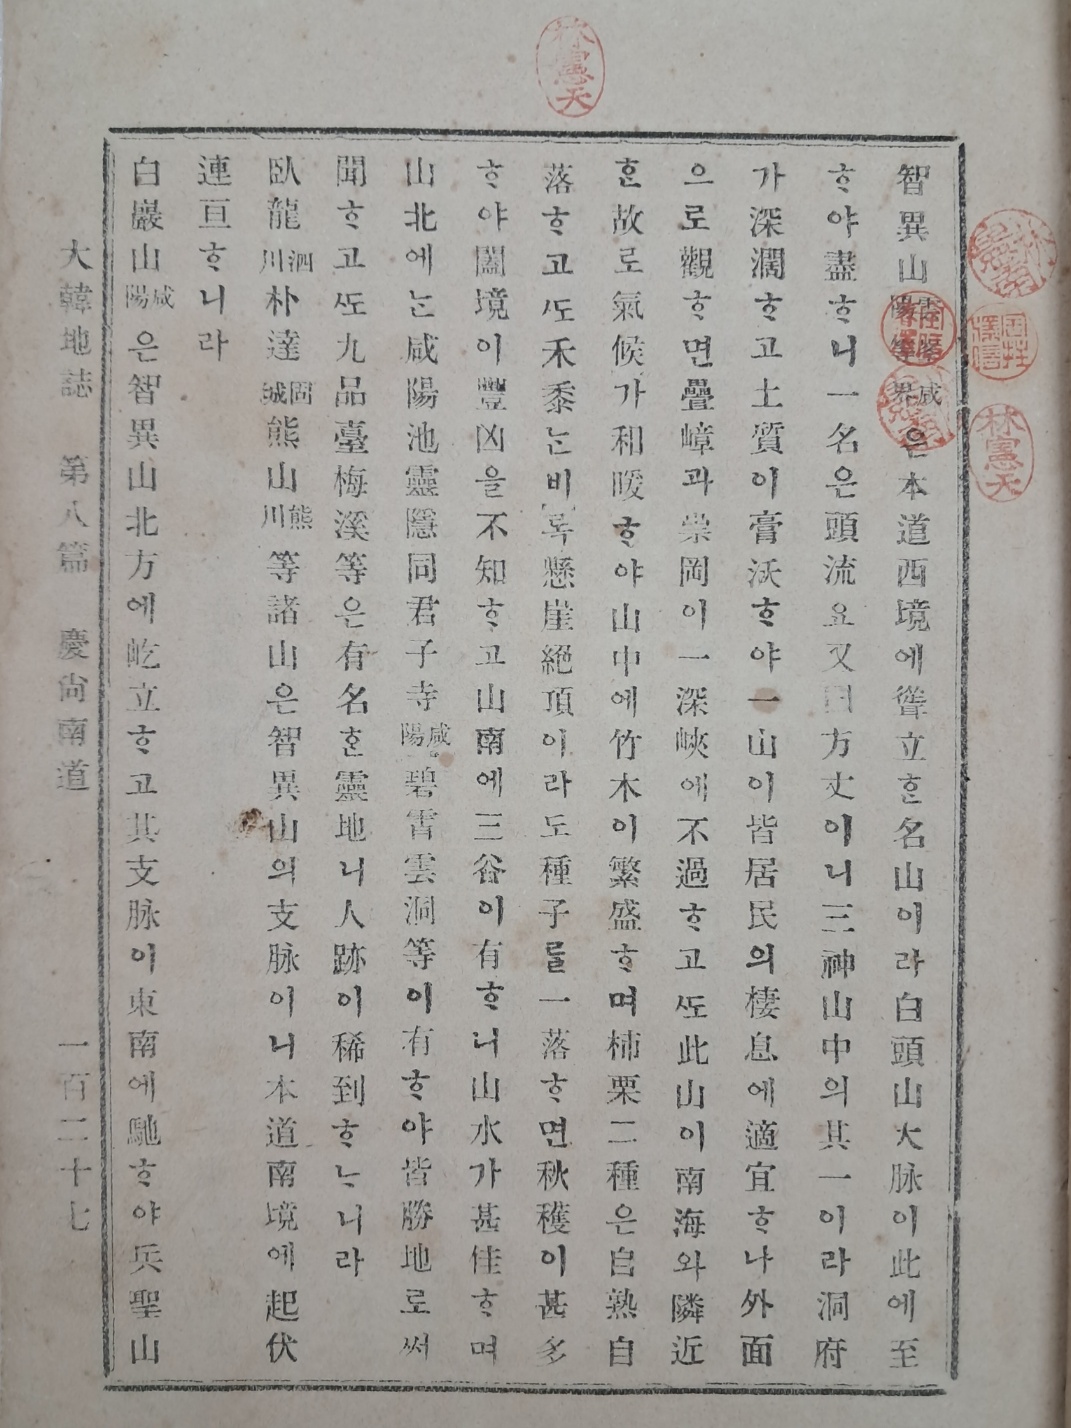 林憲天
智異山 陽等 咸 界 은本道西境에聳立ᄒᆞᆫ名山이라白頭山大脉이此에至
ᄒᆞ야盡ᄒᆞ니一名은頭流요又曰方丈이니三神山中의其一이라洞府
가深濶ᄒᆞ고土質이膏沃ᄒᆞ야一山이皆居民의棲息에適宜ᄒᆞ나外面
으로觀ᄒᆞ면疊嶂과崇岡이一深峽에不過ᄒᆞ고ᄯᅩ此山이南海와隣近
ᄒᆞᆫ故로氣候가和暖ᄒᆞ야山中에竹木이繁盛ᄒᆞ며柿栗二種은自熟自
落ᄒᆞ고ᄯᅩ禾黍ᄂᆞᆫ비록懸崖絕頂이라도種子를一落ᄒᆞ면秋穫이甚多
ᄒᆞ야闔境이豐凶을不知ᄒᆞ고山南에三谷이有ᄒᆞ니山水가甚佳ᄒᆞ며
山北에ᄂᆞᆫ咸陽池靈隱同君子寺咸陽碧霄雲洞等이有ᄒᆞ야皆勝地로써
聞ᄒᆞ고ᄯᅩ九品臺梅溪等은有名ᄒᆞᆫ靈地니人跡이稀到ᄒᆞᄂᆞ니라
臥龍泗川朴達固城熊山熊川等諸山은智異山의支脉이니本道南境에起伏
連亘ᄒᆞ니라
白巖山咸陽은智異山北方에屹立ᄒᆞ고其支脉이東南에馳ᄒᆞ야兵聖山
大韓地誌 第八篇 慶尙南道 一百二十七
林憲天